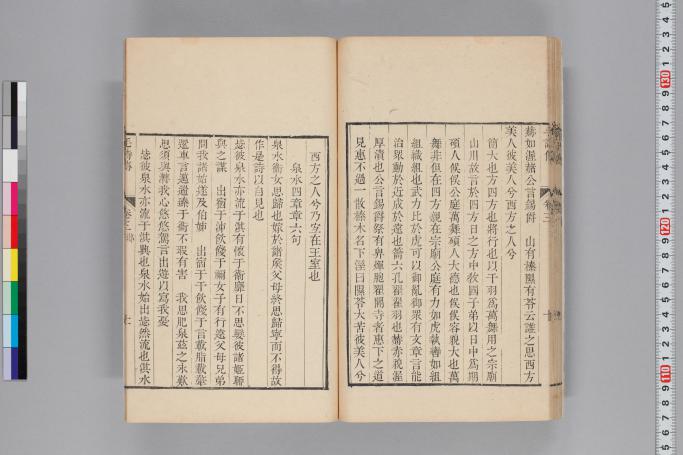 赫如渥赭公言錫爵　山有榛隰有苓云誰之思西方
美人彼美人兮西方之人兮
簡大也方四方也將行也以干羽為萬舞用之宗廟
山川故言於四方日之方中敎國子弟以日中為期
碩人俣俣公庭萬舞碩人大德也俣俣容貌大也萬
舞非但在四方親在宗廟公庭有力如虎執轡如組
組織組也武力比於虎可以御亂御衆有文章言能
治衆動於近成於遠也籥六孔翟翟羽也赫赤貌渥
厚漬也公言錫爵祭有畀煇胞翟閽寺者惠下之道
見惠不過一散榛木名下溼曰隰苓大苦彼美人兮
西方之人兮乃宜在王室也
泉水四章章六句
泉水衞女思歸也嫁於諸矦父母終思歸寧而不得故
作是詩以自見也
毖彼泉水亦流于淇有懷于衞靡日不思孌彼諸姬聊
與之謀　出宿于泲飲餞于禰女子有行遠父母兄弟
問我諸姑遂及伯姊　出宿于干飲餞于言載脂載舝
還車言邁遄臻于衞不瑕有害　我思肥泉茲之永歎
思須與漕我心悠悠駕言出遊以寫我憂
毖彼泉水亦流于淇興也泉水始出毖然流也淇水
卷三